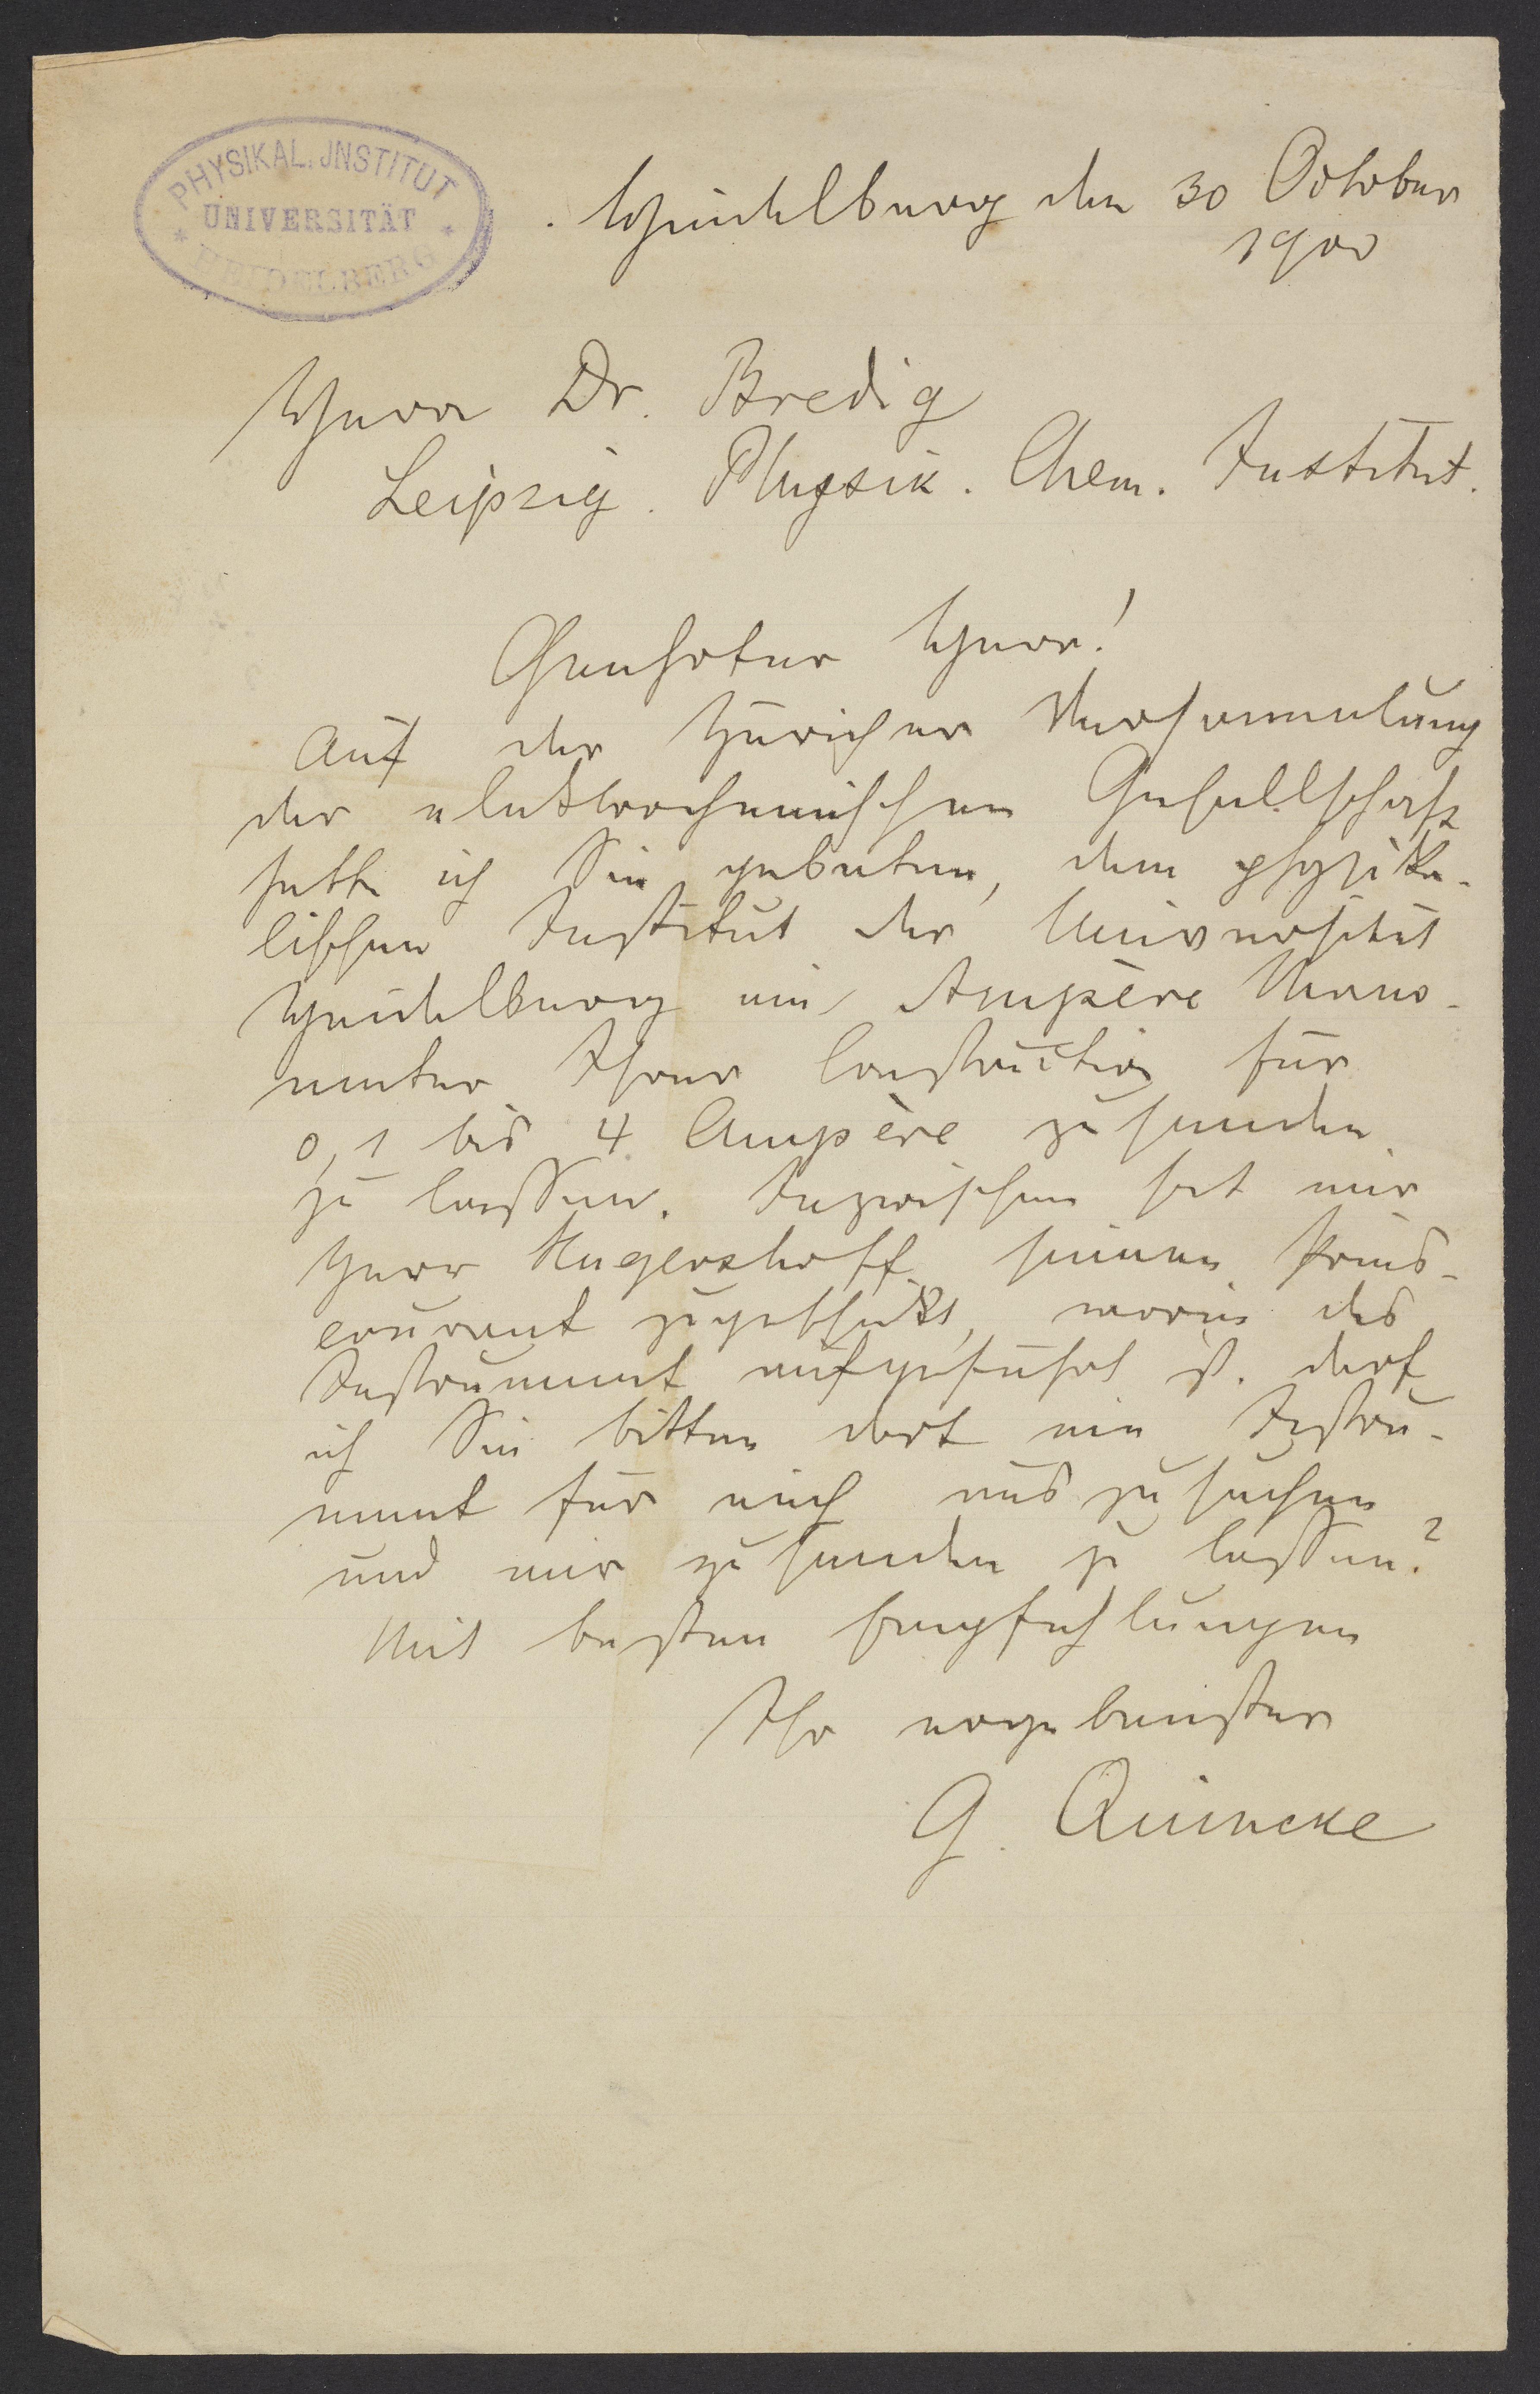 PHYSIKAL. INSTITUT
UNIVERSITÄT
* HEIDELBERG *
Heidelberg den 30 October
1900
Herrn Dr. Bredig
Leipzig. Physik. Chem. Institut.
Geehrter Herr!
Auf der Züricher Versammlung
der elektrochemischen Gesellschaft
hatte ich Sie gebeten, dem physika-
lischen Institut der Universität
Heidelberg ein Ampère Mano-
meter Ihrer Construction für
0,1 bis 4 Ampère zusenden
zu lassen. Inzwischen hat mir
Herr Hugershoff seinen Preis-
courant zugeschickt, worin das
Instrument aufgeführt ist. Darf
ich Sie bitten dort ein Instru-
ment für mich auszusuchen
und mir zusenden zu lassen?
Mit besten Empfehlungen
Ihr ergebenster
G. Quincke